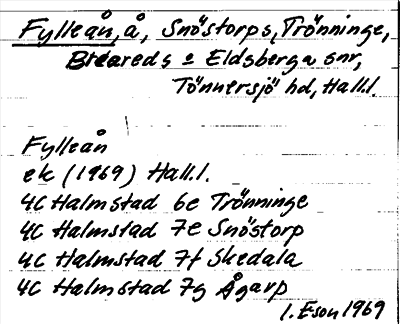 Fylleån, å, Snöstorps, Trönninge,
Breareds o Eldsberga snr,
Tönnersjö hd, Hall.l.
Fylleån
ek (1969) Hall.l.
4C Halmstad 6e Trönninge
4C Halmstad 7e Snöstorp
4C Halmstad 7f Skedala
4C Halmstad 7g Ågarp
I. Eson 1969